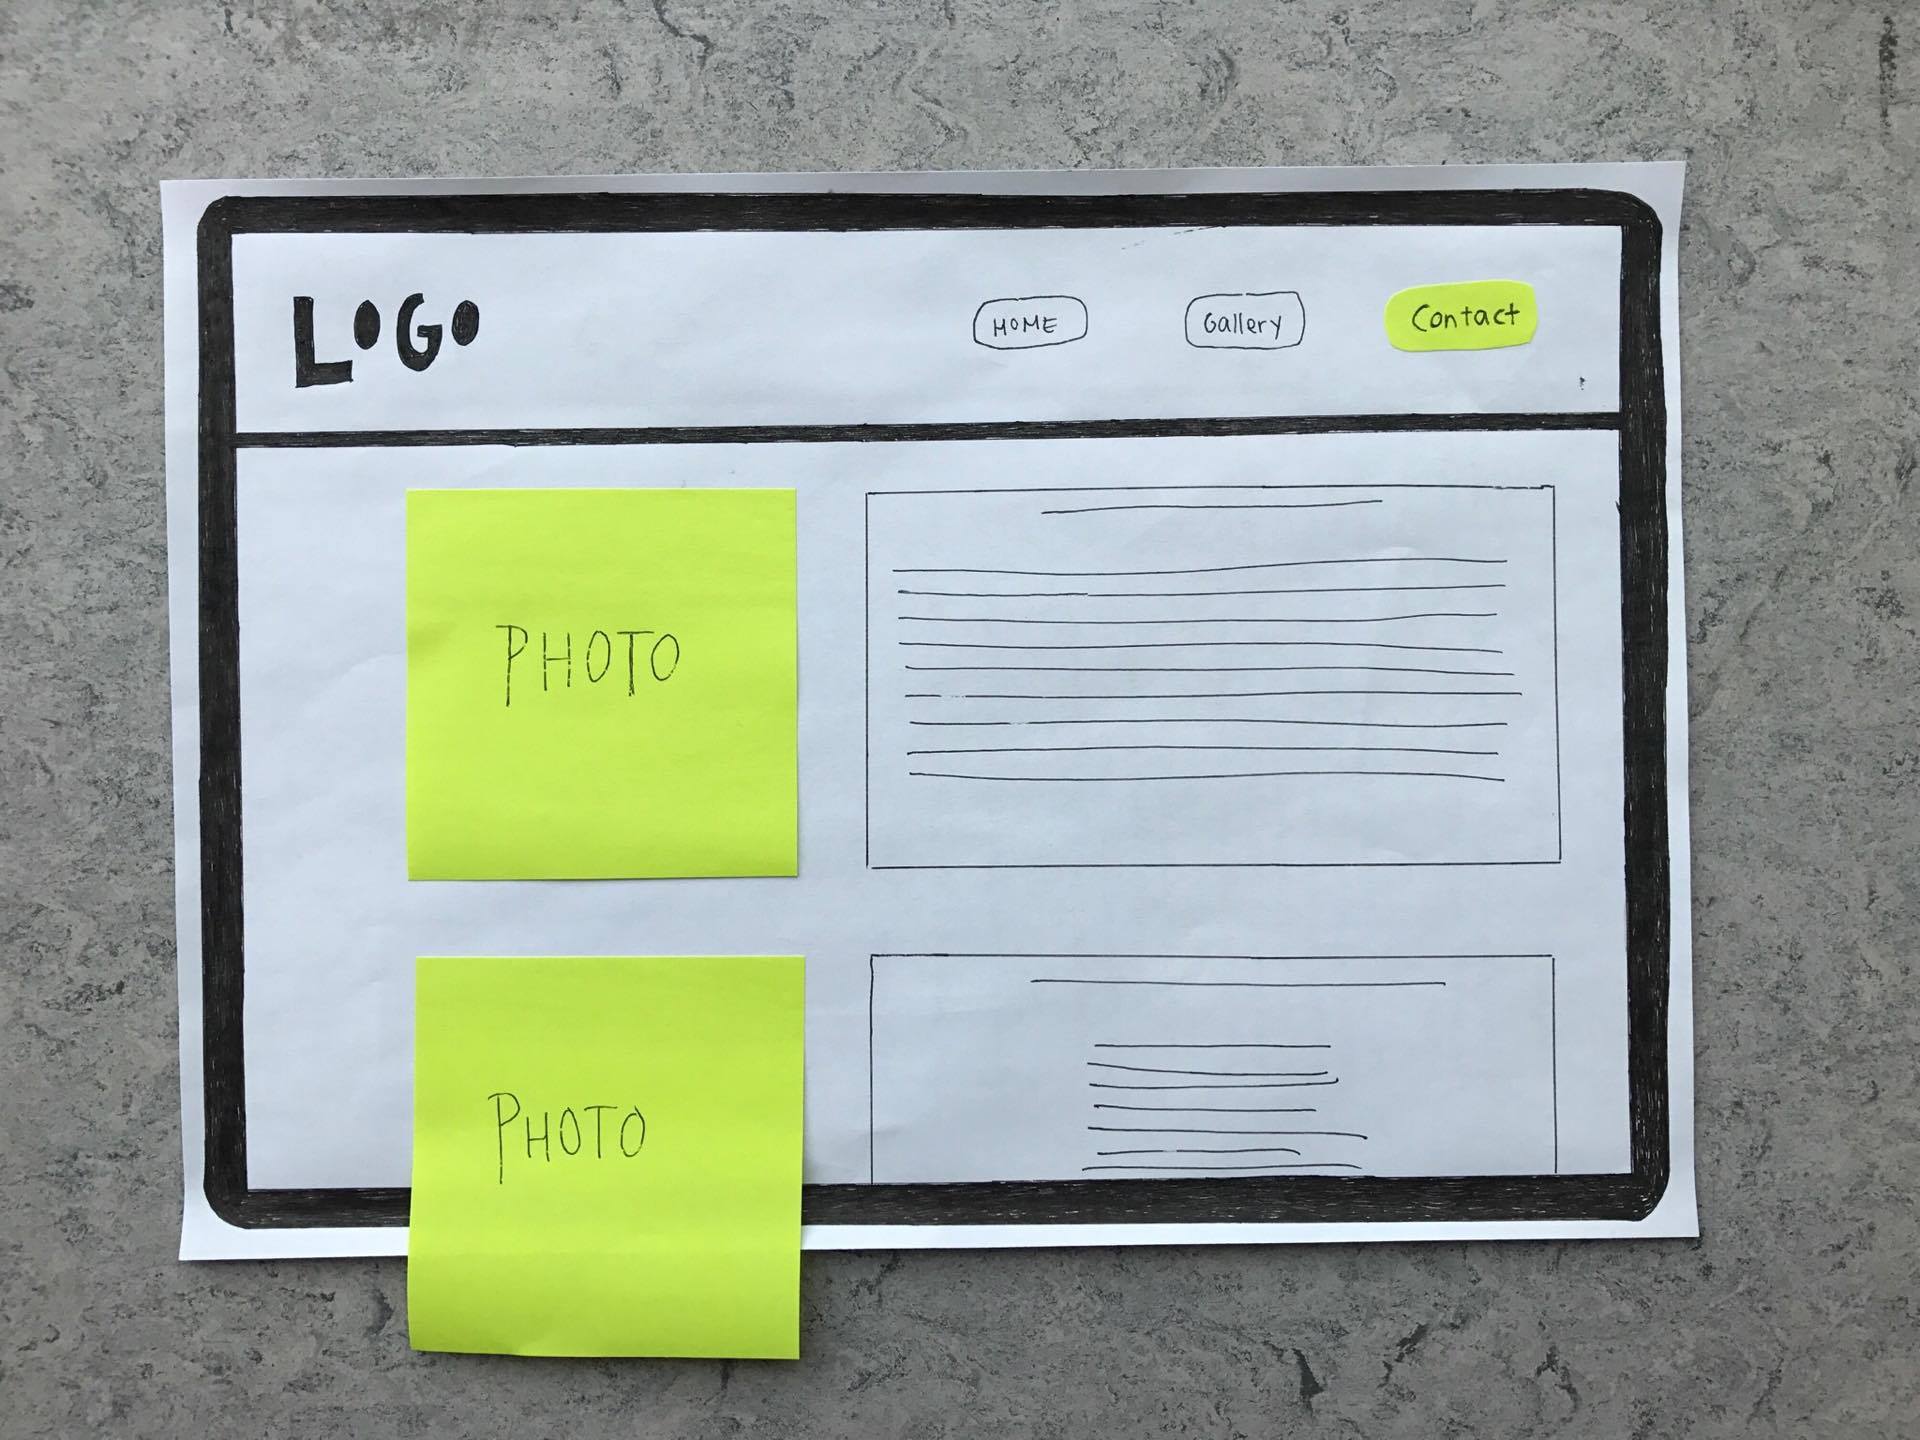 LOGO
HOME
Gallery
Contact
PHOTO
PHOTO